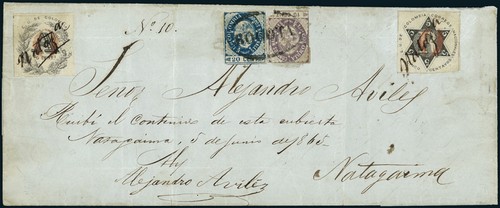 No. 10.
BOGOTA
20 CENT
Señor Alejandro Aviles
Recibí el contenido de esta cubierta
Natagaima, 5 de junio de 1865.
Alejandro Aviles
Natagaima